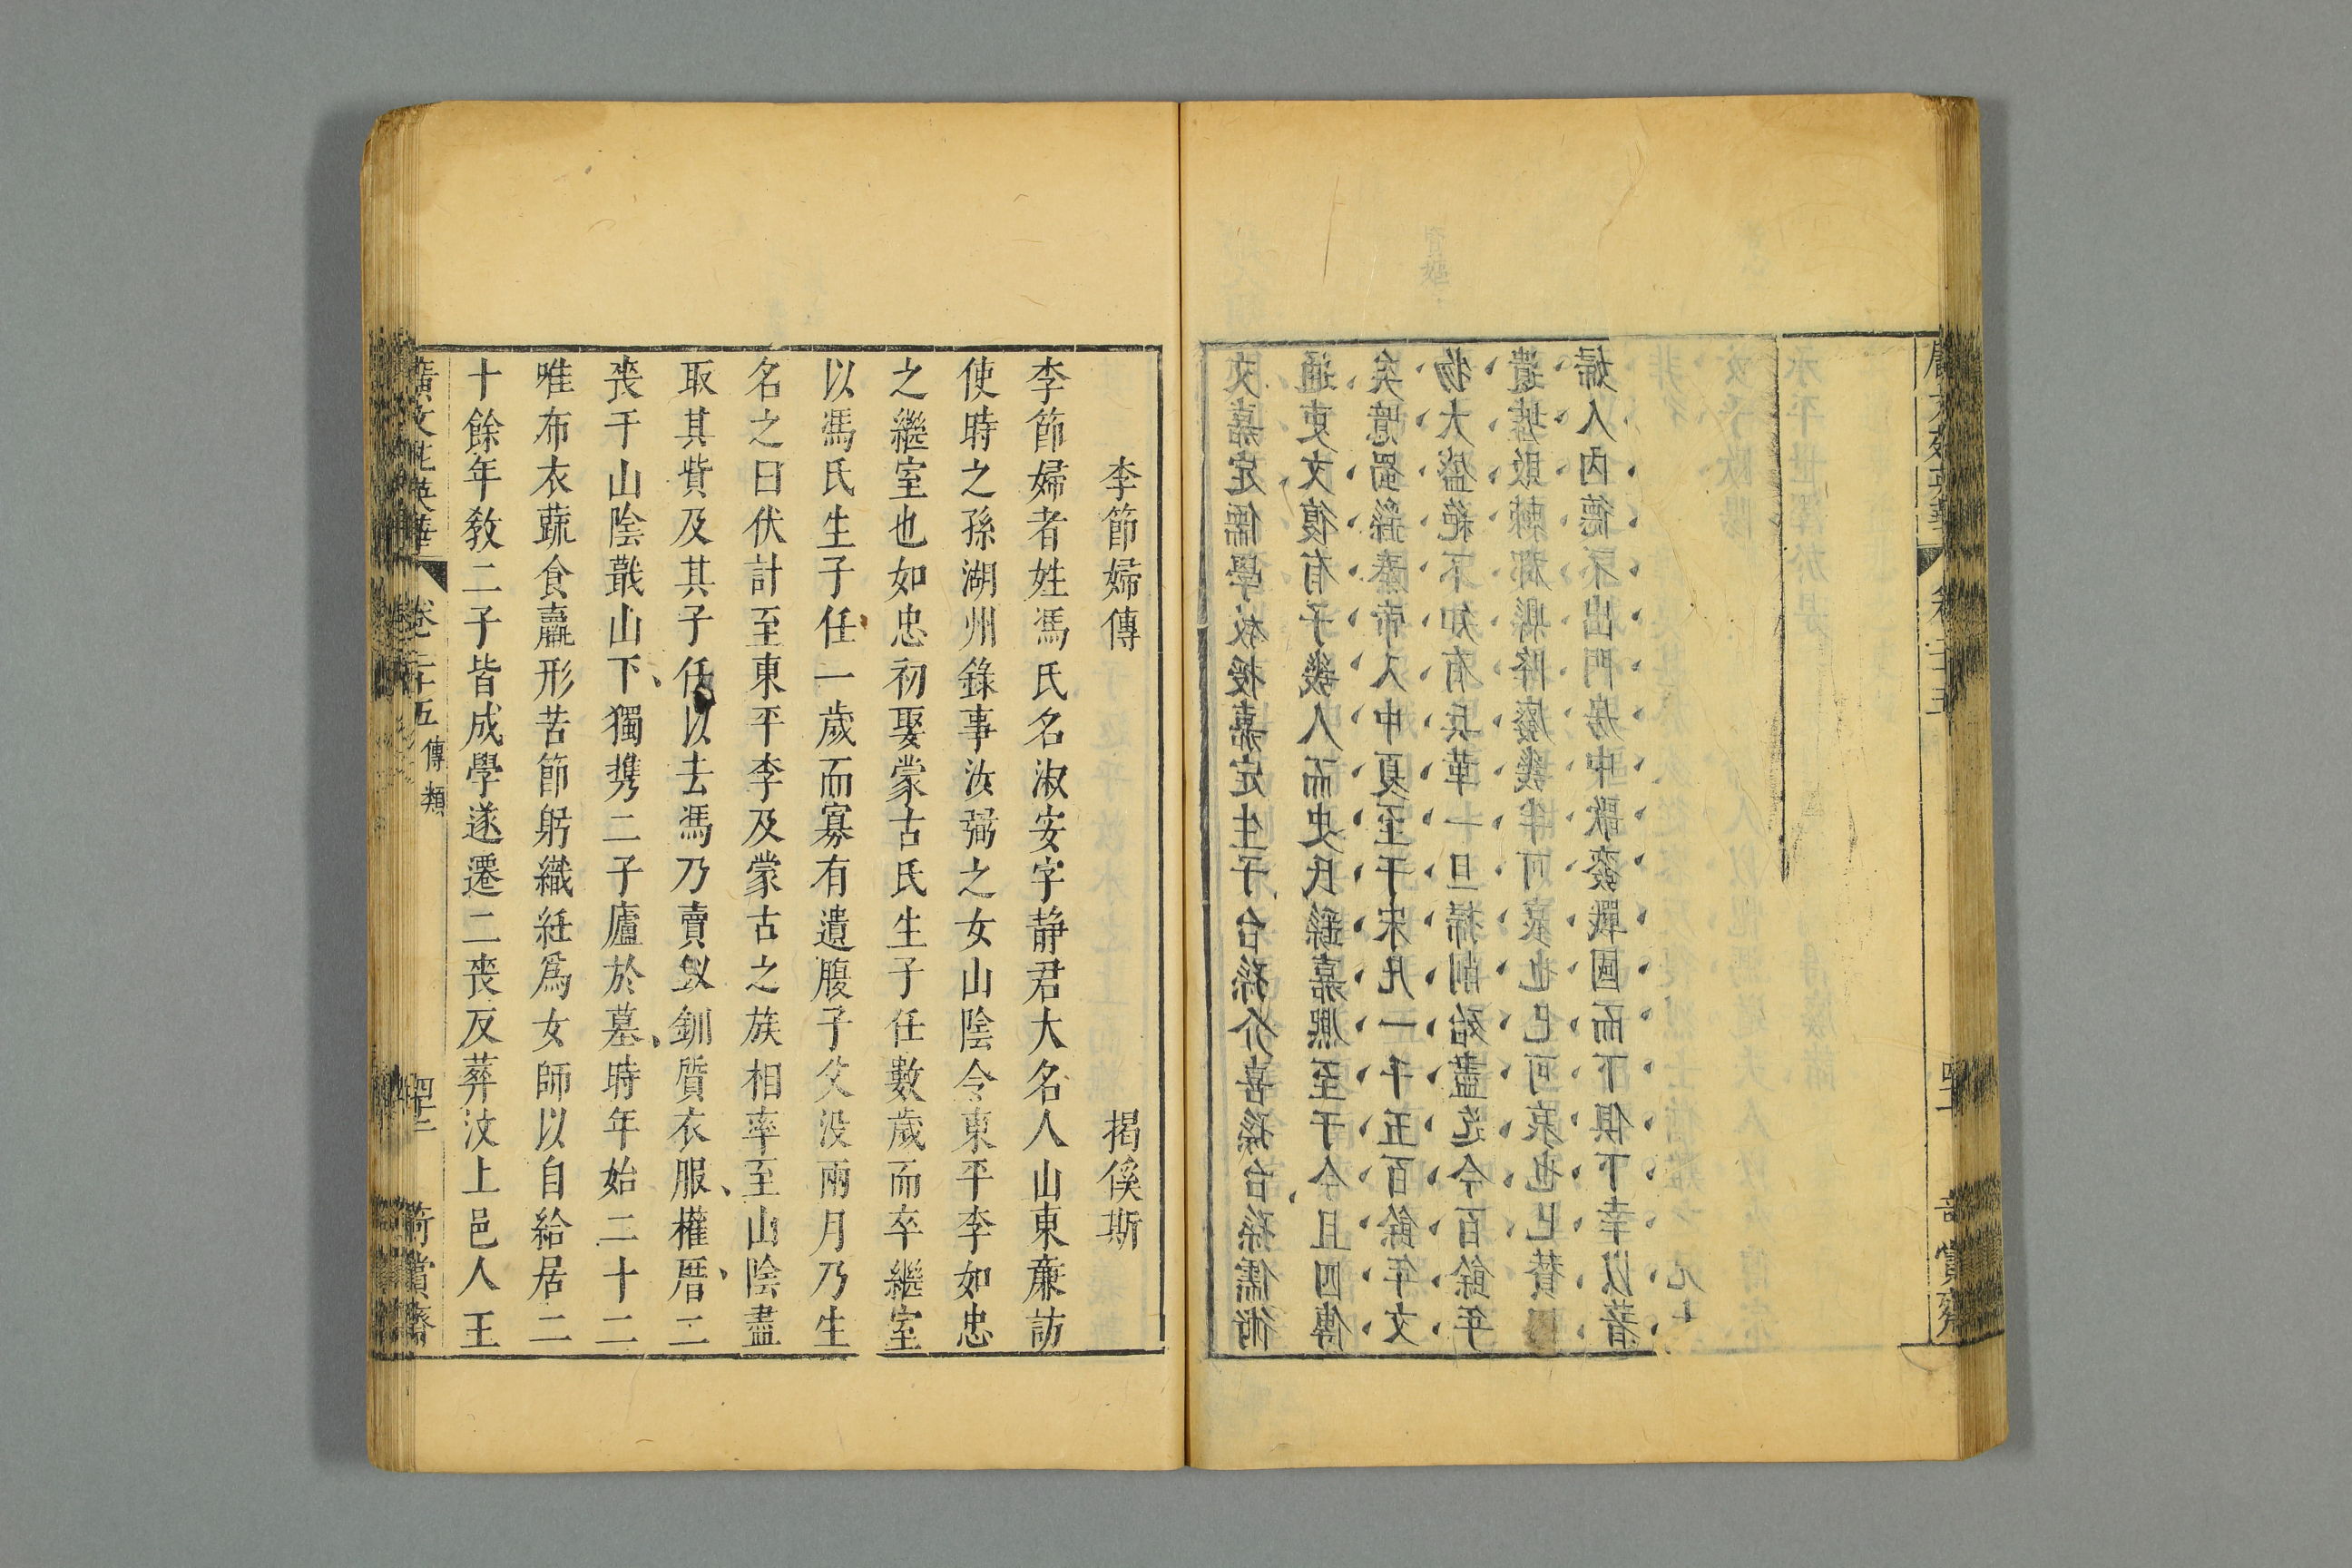 廣文苑英華 卷二十五 四十一 奇賞齋
文嘉定儒學教授嘉定生子台孫介喜孫台孫儒術
通吏文復有子幾人而史氏繇嘉熙至于今且四傳
矣噫蜀繇秦帝入中夏至于宋凡一千五百餘年文
物大盛絕不知有兵革一旦掃削殆盡迄今百餘年
遺墟敗棘郡縣降廢幾半可哀也已可哀也已贊曰
婦人內德不出門房中歌變戰國而下俱下幸以著
李節婦傳 揭傒斯
李節婦者姓馮氏名淑安字静君大名人山東廉訪
使時之孫湖州錄事汝弼之女山陰令東平李如忠
之繼室也如忠初娶蒙古氏生子任數歲而卒繼室
以馮氏生子任一歲而寡有遺腹子父没兩月乃生
名之曰伏計至東平李及蒙古之族相率至山陰盡
取其貲及其子任以去馮乃賣釵釧質衣服權厝二
喪于山陰蕺山下獨攜二子廬於墓時年始二十二
唯布衣蔬食羸形苦節躬織紝爲女師以自給居二
十餘年敎二子皆成學遂遷二喪反葬汶上邑人王
廣文苑英華 卷二十五 傳類 四十二 奇賞齋